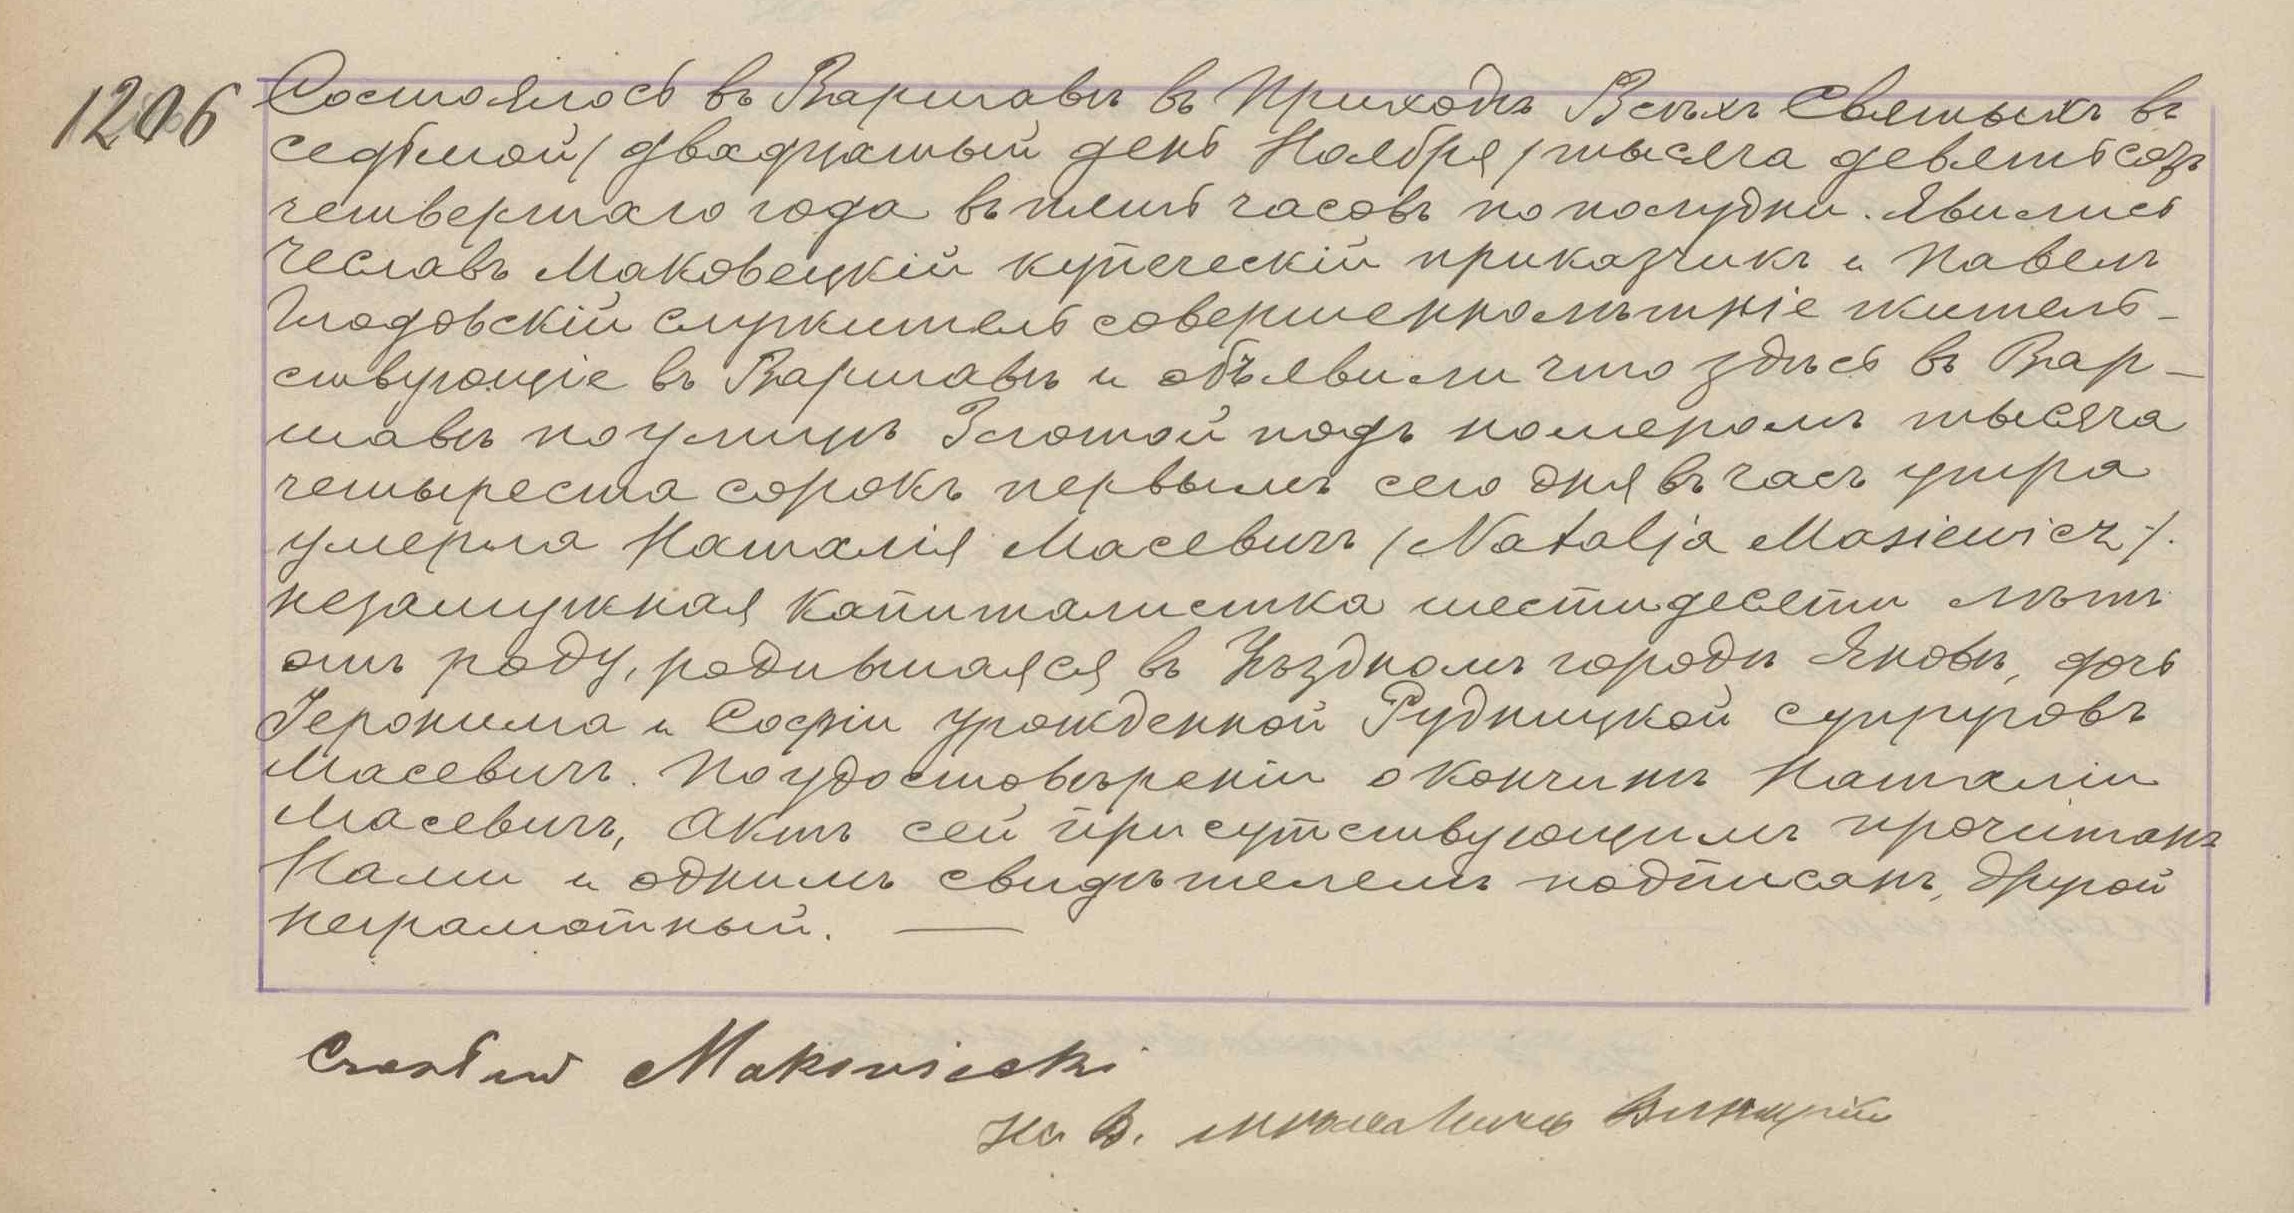 1206
Состоялось въ Варшавѣ въ Приходѣ Всѣхъ Святыхъ въ
седьмой/двадцатый день Ноября/тысяча девятьсотъ
четвертаго года въ пять часовъ по полудни. Явились
Чеславъ Маковецкій купеческій приказчикъ и Павелъ
Глодовскій служитель совершеннолѣтніе житель-
ствующіе въ Варшавѣ и объявили что здѣсь въ Вар-
шавѣ по улицѣ Злотой подъ номеромъ тысяча
четыреста сорокъ первымъ сего дня въ часъ утра
умерла Наталія Масевичъ /Natalja Masiewicz/.
незамужная капиталистка шестидесяти лѣтъ
отъ роду, родившаяся въ Уѣздномъ городѣ Яновѣ, дочь
Іеронима и Софіи урожденной Рудницкой супруговъ
Масевичъ. По удостовѣреніи о кончинѣ Наталіи
Масевичъ, Актъ сей присутствующимъ прочитанъ
Нами и однимъ свидѣтелемъ подписанъ, другой
неграмотный. —
Czesław Makowiecki